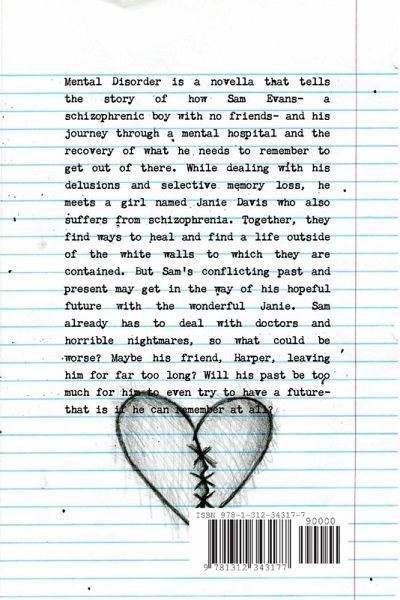 Mental Disorder is a novella that tells
the story of how Sam Evans- a
schizophrenic boy with no friends- and his
journey through a mental hospital and the
recovery of what he needs to remember to
get out of there. While dealing with his
delusions and selective memory loss, he
meets a girl named Janie Davis who also
suffers from schizophrenia. Together, they
find ways to heal and find a life outside
of the white walls to which they are
contained. But Sam's conflicting past and
present may get in the way of his hopeful
future with the wonderful Janie. Sam
already has to deal with doctors and
horrible nightmares, so what could be
worse? Maybe his friend, Harper, leaving
him for far too long? Will his past be too
much for him to even try to have a future-
that is if he can remember at all?
ISBN 978-1-312-34317-7
90000
9 781312 343177